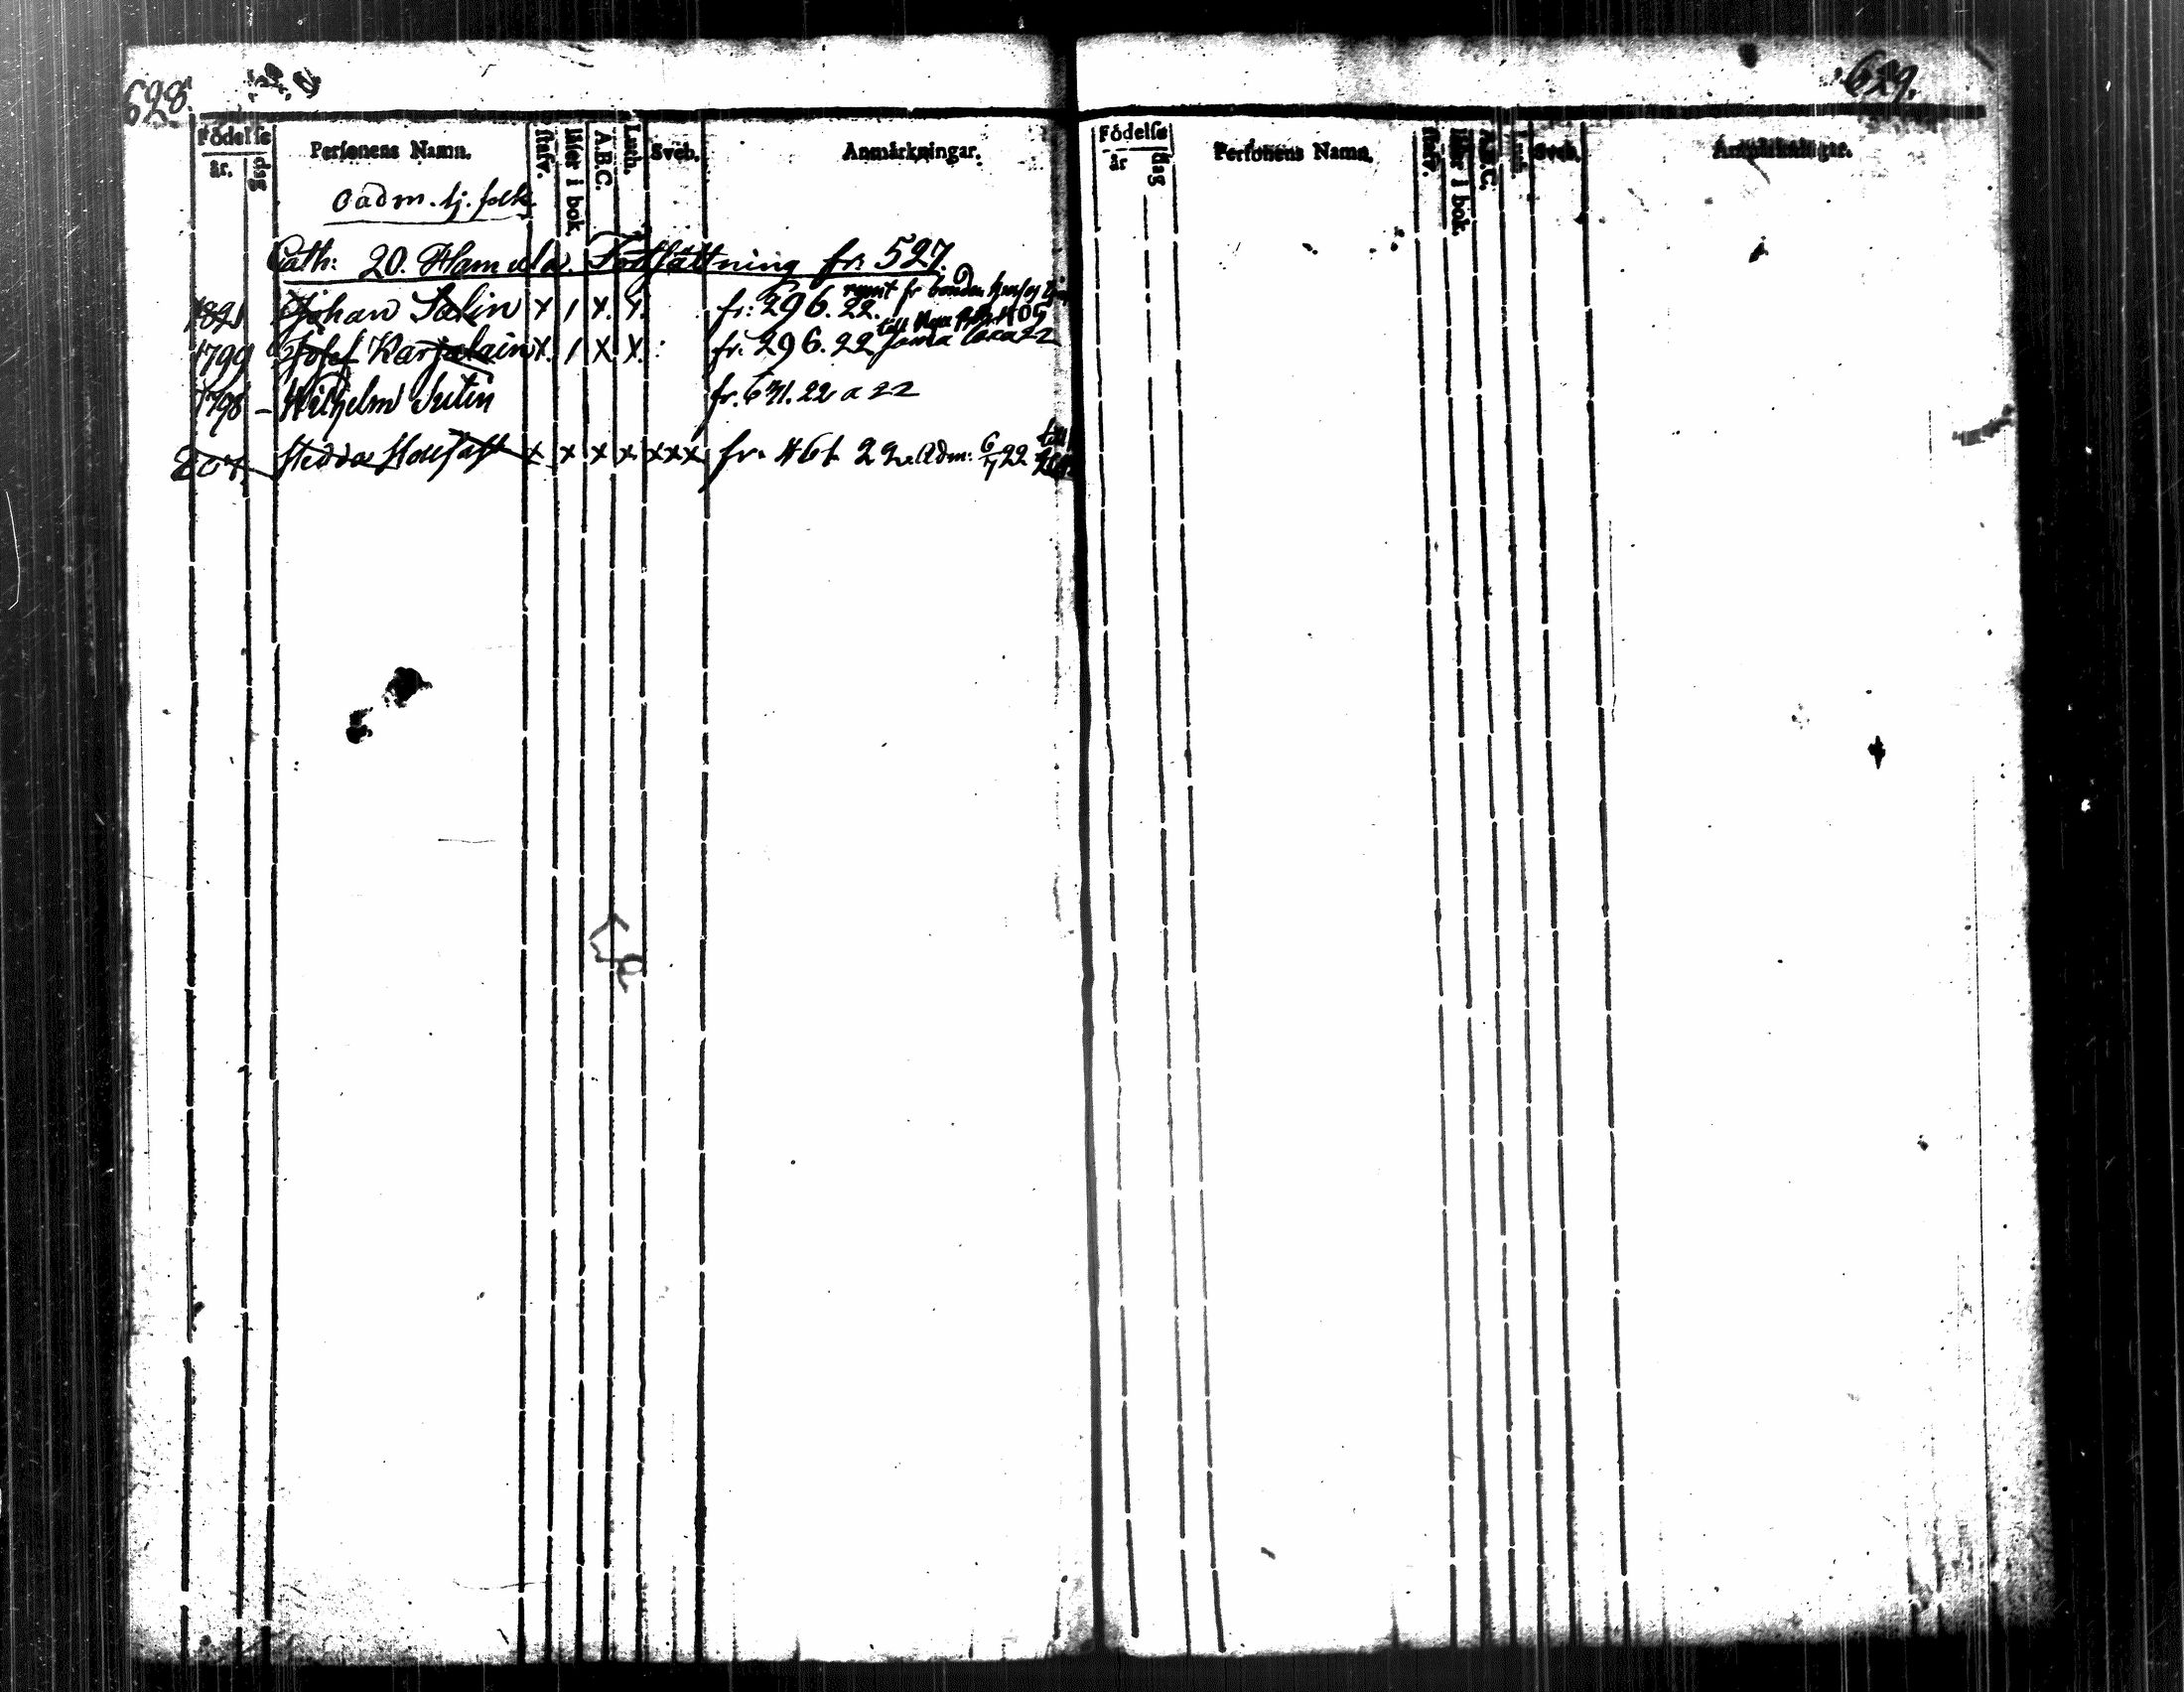 628.
Födelse
år. dag
Personens Namn.
stafv.
läser i bok.
A.B.C.
Luth.
Sveb.
Anmärkningar.
oadm. tj. folk.
Cath: 20. Hamula. Fortsättning fr. 527.
1821 Johan Salin x / x. x. fr: 296. 22.
1799 Josef Karjalain x. / x. x. fr. 296. 22
1798 – Wilhelm Autin fr. 631. 22 a 22
807. Hedda x x x x xxx fr. 461. 22. Adm: 6/7 22
629.
Födelse
år dag
Personens Namn.
stafv.
läser i bok.
A.B.C.
Sveb.
Anmärkningar.